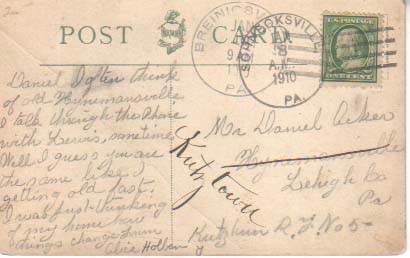 POST CARD
BREINIGSV
JAN
9
PA
CROCKSVILLE
18
A.M.
1910
PA.
U.S. POSTAGE
ONE CENT
Daniel I often think
of old Hynemansville
I talk through the Phone
with Lewis, sometimes
Well I guess you are
the same like I
getting old fast.
I was just thinking
of my home how
things change down
Alvia Holben
Mr Daniel Acker
Hynemansville
Lehigh Co
Pa
Kutztown
Kutztown R.F. No 5-